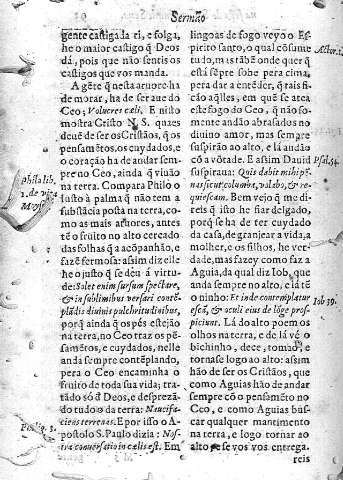 Sermão
gente castigada ri, e folga,
he o maior castigo q̃ Deos
dá, pois que não sentis os
castigos que vos manda.
A gẽte q̃ nesta aruore ha
de morar, ha de ser aue do
Ceo; Volucres cæli, E nisto
mostra Cristo N. S. quaes
deuẽ de ser os Cristãos, q̃ os
pensamẽtos, os cuydados, e
o coração ha de andar sem-
pre no Ceo, ainda q̃ viuão
na terra. Compara Philo o
justo à palma q̃ não tem a
substãcia posta na terra, co-
mo as mais aruores, antes
tẽ o fruito no alto cercado
das folhas q̃ a acõpanhão, e
fazẽ fermosa: assim diz elle
he o justo q̃ se deu á virtu-
de: Solet enim sursum spectare,
& in sublimibus versari contẽ-
plãdis diuinis pulchritudinibus,
porq̃ ainda q̃ os pés estejão
na terra, no Ceo traz os pẽ-
samẽtos, e cuydados, nelle
anda sempre contẽplando,
pera o Ceo encaminha o
fruito de toda sua vida; tra-
tãdo só d'Deos, e desprezã-
do tudo o da terra: Naucifa-
ciens terrena. E por isso o A-
postolo S. Paulo dizia: Nos-
tra conuersatio in cælis est. Em
Philo lib.
1. de vita
Moys.
Philip. 3.
lingoas de fogo veyo o Es-
pirito santo, o qual cõsume
tudo, mas tãbẽ onde quer q̃
està sẽpre sobe pera cima,
pera dar a entẽder, q̃ rais fi-
cão aq̃lles, em quẽ se atea
este fogo do Ceo, q̃ não so-
mente andão abrasados no
diuino amor, mas sempre
suspirão ao alto, e lá andão
cõ a võtade. E assim Dauid
suspiraua: Quis dabit mihi pẽ-
nas sicut columbæ, volabo, & re-
quiescam. Bem vejo q̃ me di-
reis q̃ isto he fiar delgado,
porq̃ se ha de ter cuydado
da casa, de granjear a vida, a
molher, e os filhos, he ver-
dade, mas fazey como faz a
Aguia, da qual diz Iob, que
anda sempre no alto, e lá tẽ
o ninho: Et inde contemplatur
escã, & oculi eius de lõge pros-
piciunt. Lá do alto poem os
olhos na terra, e de lá vé o
bichinho, dece, toma, e
tornase logo ao alto: assim
hão de ser os Cristãos, que
como Aguias hão de andar
sempre cõ o pensamẽto no
Ceo, e como Aguias bus-
car qualquer mantimento
na terra, e logo tornar ao
alto e se vos vos entrega-
reis
Actor. 2.
Psal. 54.
Iob 39.